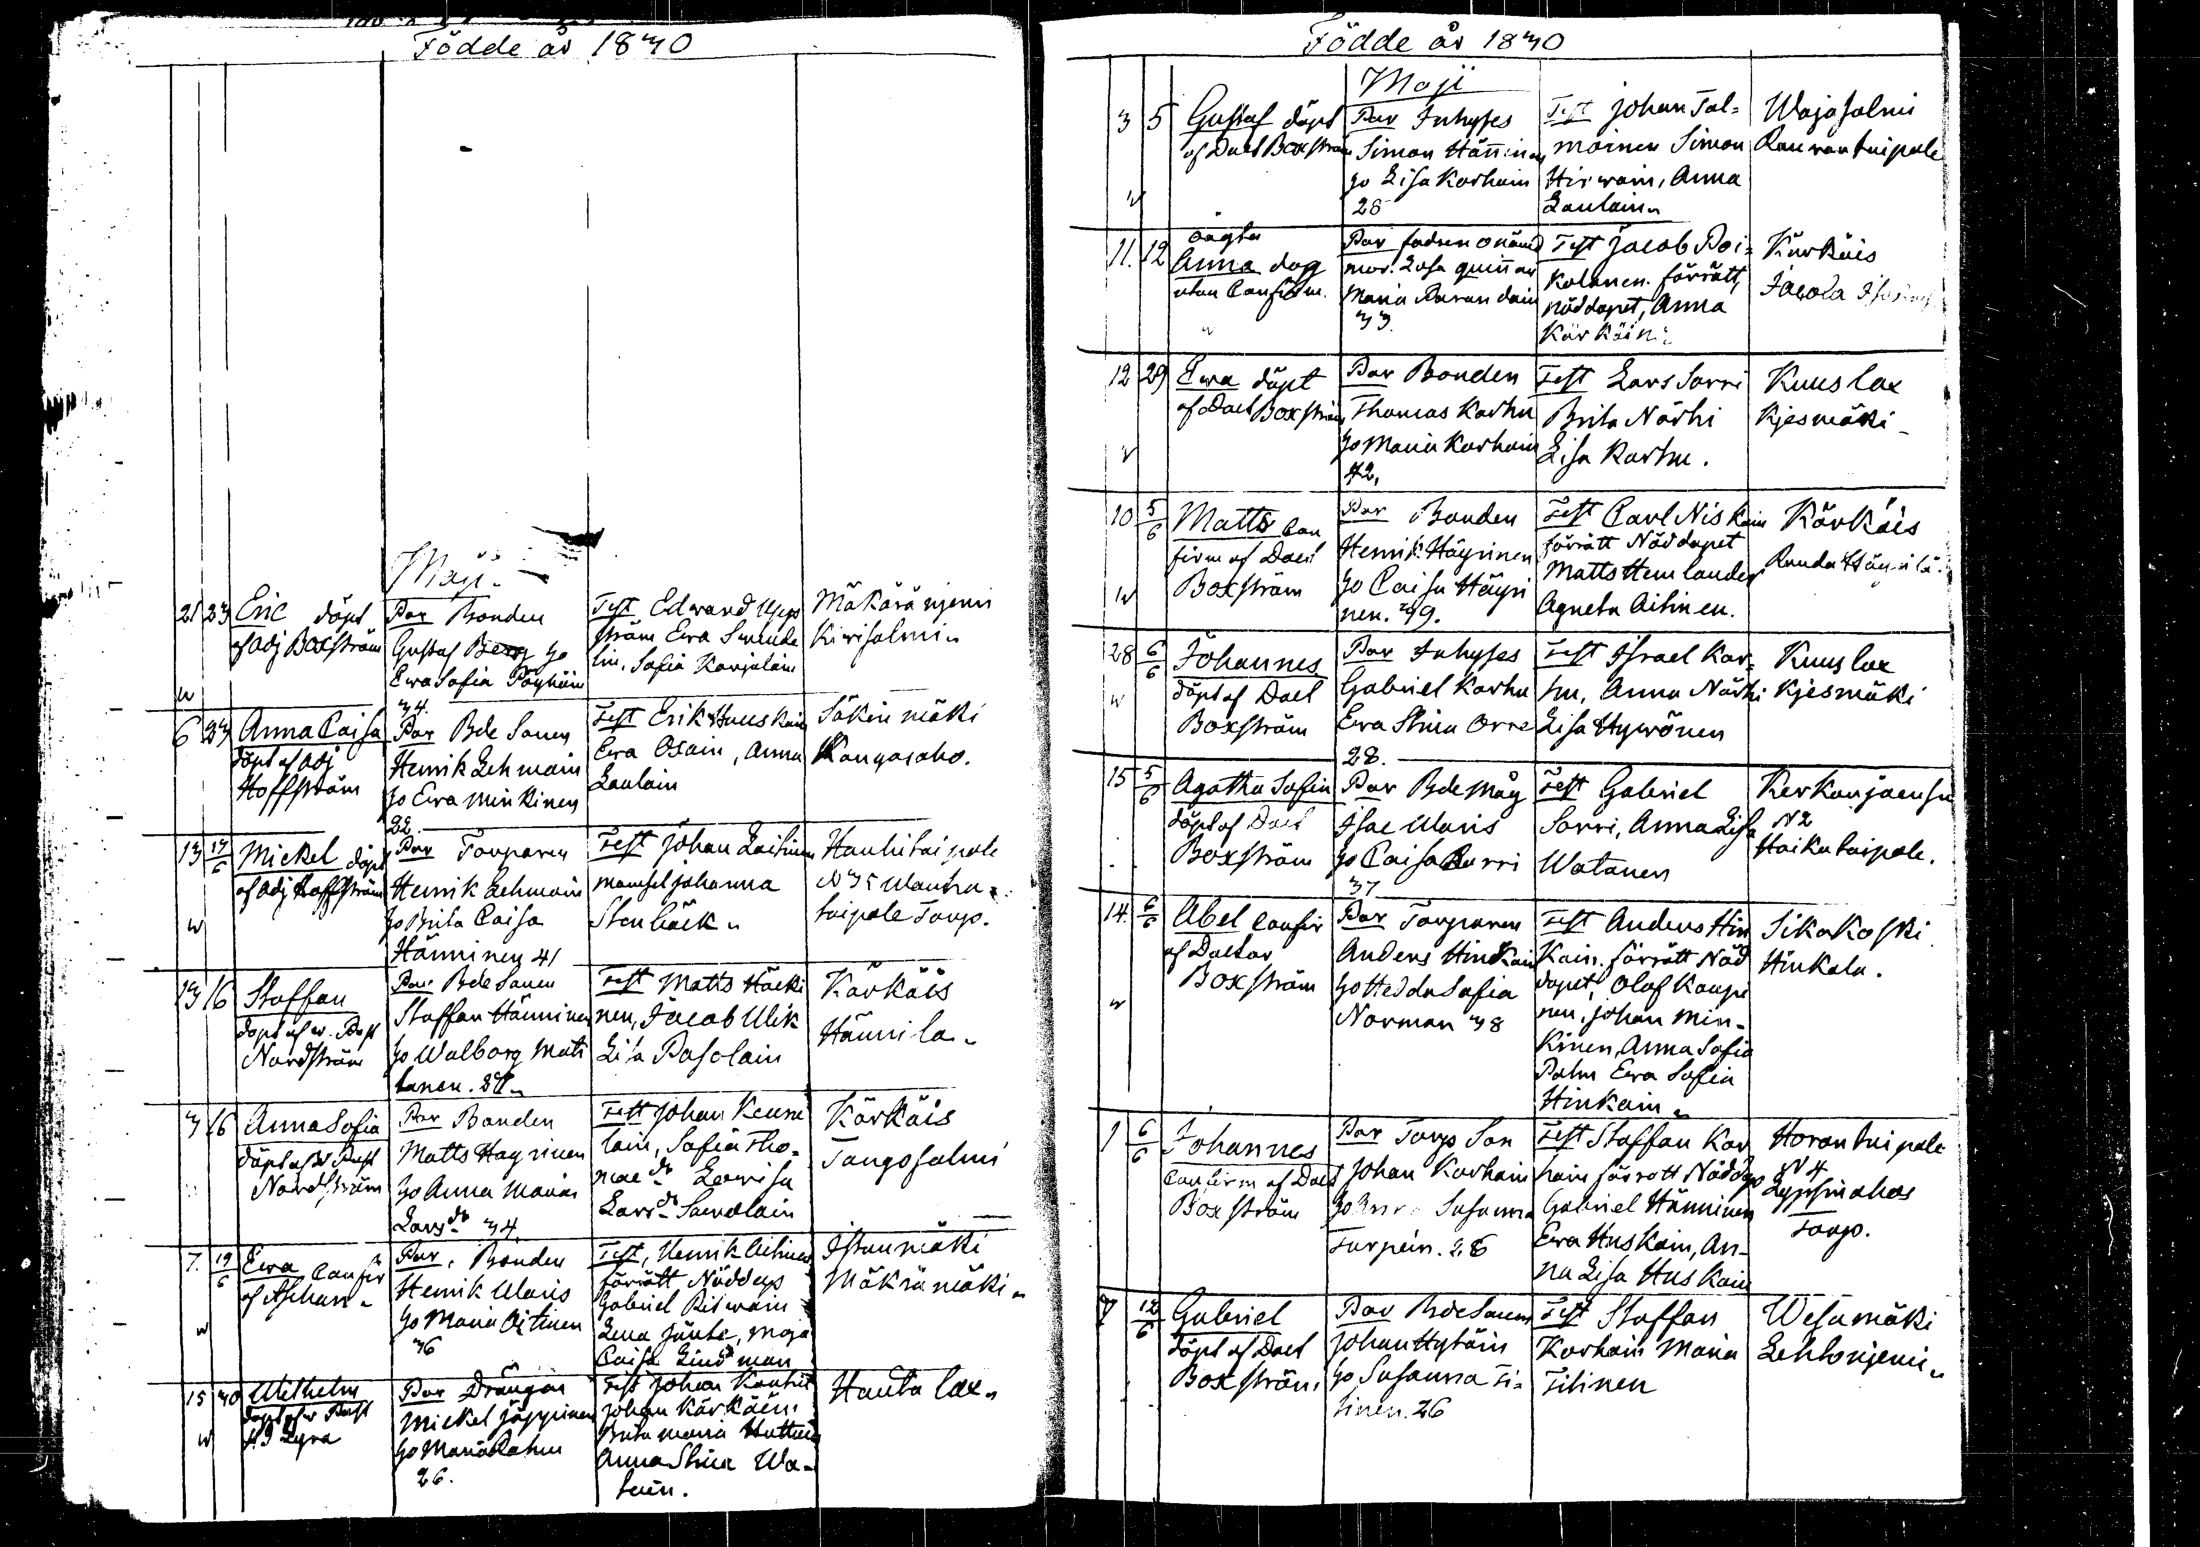 Födde år 1830
Maji
21 23 Eric döpt
af Adj Boxström
Par Bonden
Gustaf Berg ho
Ewa Sofia Pöyhöin
34.
Test Edward
ström Ewa
lin, Sofia Karjalain
Mäkäräniemi
Kirisalmi
6 23 Anna Caisa
döpt af Adj
Hoffström
Par Bde Sonen
Henrik Lehmain
ho Ewa Minkinen
22.
Test Erik Huuskain
Ewa Osain, Anna
Laulain
Säkin mäki
Kangasaho.
13 14/6 Mickel döpt
af Adj Hoffström
Par Torparen
Henrik Lehmain
ho Brita Caisa
Hänninen 41
Test Johan Laitinen
Mamsel Johanna
Stenbäck
Hauhitaipale
N 35
taipale Torp.
13 16 Staffan
döpt af w. Past
Nordström
Par Bde Sonen
Staffan Hänninen
ho Walborg Mati
lanen.
Test Matts Häcki
nen, Jacob Ulik
Lisa Pasolain
Kärkäis
Hännila
3 16 Anna Sofia
döpt af w Past
Nordström
Par Bonden
Matts Häyrinen
ho Anna Maria
Larsdr 34
Test Johan
lain, Sofia Tho-
mae dr Lowisa
Larsdr Sawolain
Kärkäis
Tangosalmi
7. 19/6 Ewa Confir
af Aschan
Par, Bonden
Henrik Ularis
ho Maria Oitinen
36
Test, Henrik Aitinen
förrätt Nöddop
Gabriel Hirwain
Lena Jänte, Maja
Caisa Lindman
Istunmäki
Mäkrämäki
15 30 Wilhelm
döpt af w Past
Lyra
Par Drängen
Mickel Jäppinen
ho Maria Rahu
26.
Test Johan
Johan Kärkäin
Brita Maria Huttuin
Anna Stina Wa-
tain.
Hanta lax
Födde år 1830
Maji
3 5 Gustaf döpt
af Doct Boxström
Par Inhyses
Simon Hänninen
ho Lisa Korhain
28
Test Johan Tal=
mainen Simon
Hirwain, Anna
Laulain
Wajasalmi
Rauwantaipale
11. 12 oägta
Anna dog
utan Confirm.
Par fadren onämd
mor. Lösa quinnan
Maria Parandain
33.
Test Jacob Poi=
kolanen. förrätt,
nöddopet, Anna
Kärkäin
Kärkäis
Jacola
12 29 Ewa döpt
af Doct Boxström
Par Bonden
Thomas Karhu
ho Maria Korhain
42,
Test Lars Sorri
Brita Närhi
Lisa Karhu.
Kuus lax
Kjesmäki
10 5/6 Matts Con
firm af Doct
Boxström
Par Bonden
Henrik Häyrinen
ho Caisa Häyri
nen. 39.
Test Carl Niskain
förrätt Nöddopet
Matts Hemlander
Agneta Aitinen.
Kärkäis
Randa Häyrilä.
28 6/6 Johannes
döpt af Doct
Boxström
Par Inhyses
Gabriel Karhu
Ewa Stina Orre
28.
Test Israel Kar=
hu, Anna Närhi
Lisa Hywönen
Kuus lax
Kjesmäki
15 5/6 Agatha Sofia
döpt af Doct
Boxström
Par Bde Måg
Isac Ularis
ho Caisa Burri
37
Test Gabriel
Sorri, Anna Lisa
Watanen
Kerkonjoensu
N 2
Haikataipale.
14. 6/6 Abel Confir
af Doctor
Boxström
Par Torparen
Anders Hinkain
ho Hedda Sofia
Norman 38
Test Anders Hin
kain. förrätt Nöd
dopet, Olof Kaupi
nen, Johan Min-
kinen, Anna Sofia
Palm Ewa Sofia
Hinkain
Sikakoski
Hinkala.
1 6/6 Johannes
Confirm af Doct
Boxström
Par Torp Son
Johan Korhain
ho Susanna
Turpein. 28
Test Staffan Kor
hain förrätt Nöddop
Gabriel Hänninen
Ewa Huskain, An-
na Lisa Huskain
Horontaipale
N 4
Torp.
7 12/6 Gabriel
döpt af Doct
Boxström,
Par Bde Sonen
Johan Hytöin
ho Susanna Ti=
tinen. 26
Test Staffan
Korhain Maria
Titinen
Wesamäki
Lehtoniemi